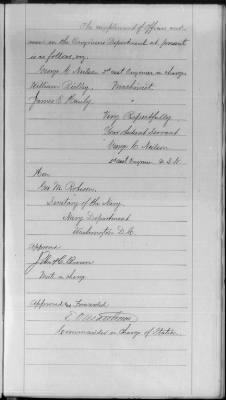 The complement of Officers and
men in the Engineers Department at present
is as follows, viz,
George C. Neilson 2nd asst Engineer in charge
William Reilly Machinist
James E. "
Very Respectfully
Your Obedient Servant
George C. Neilson
2nd asst Engineer U.S.N.
Hon
Geo M. Robeson
Secretary of the Navy
Navy Department
Washington D.C.
Approved
John C. Brown
Mate in charge
Approved & Forwarded
E.
Commander in charge of Station